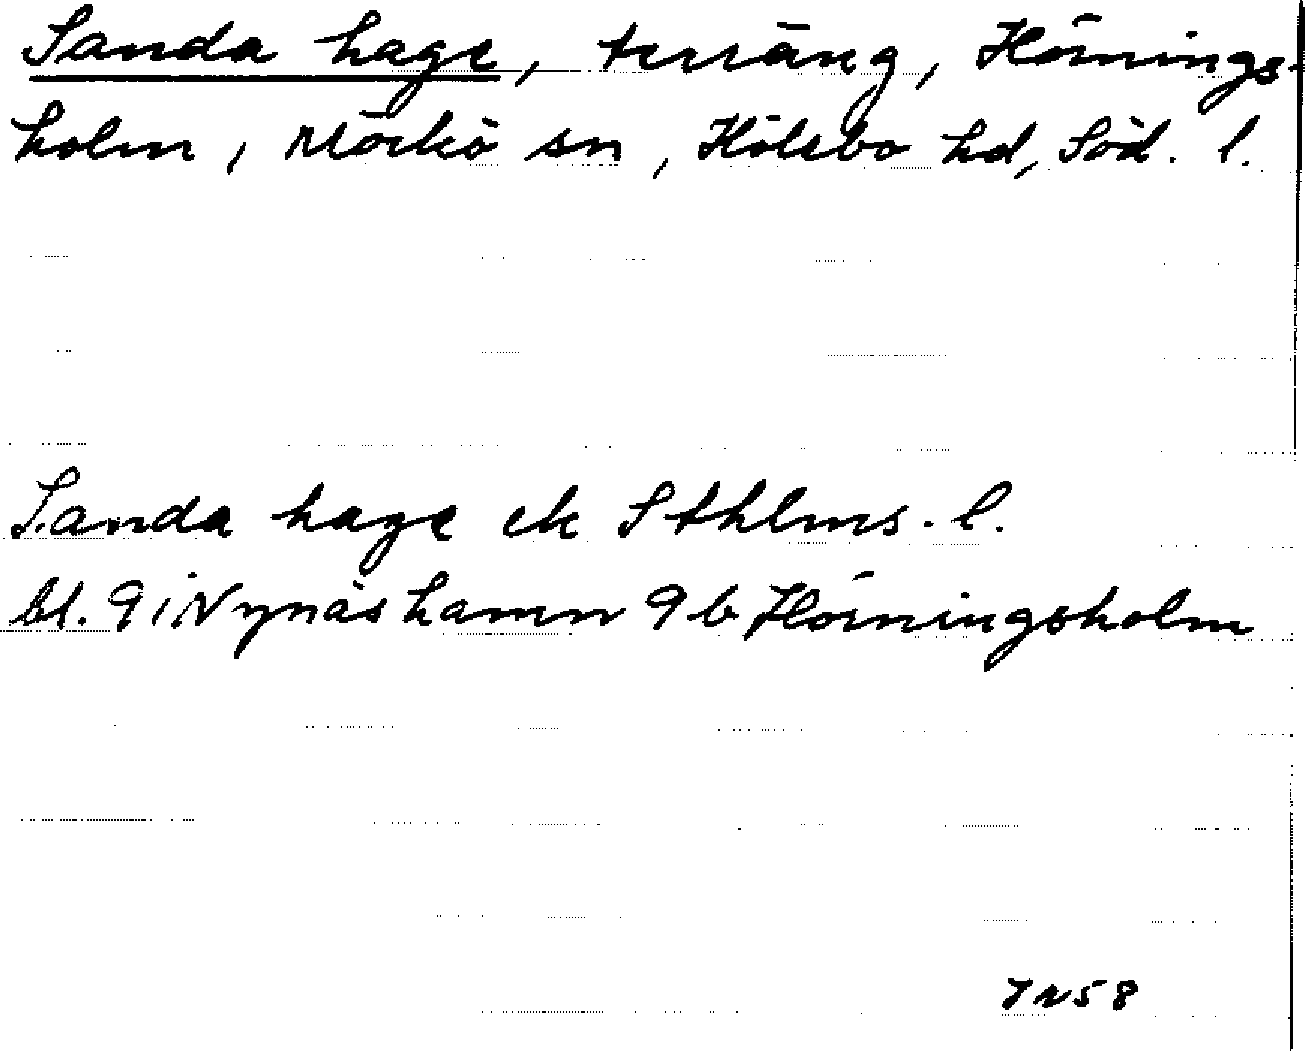 Sanda hage, terräng, Hörnings-
holm, Mörkö sn, Hölebo hd, Söd. l.
Sanda hage ek Sthlms. l.
bl. 9 i Nynäshamn 9 b Hörningsholm
7 N 58